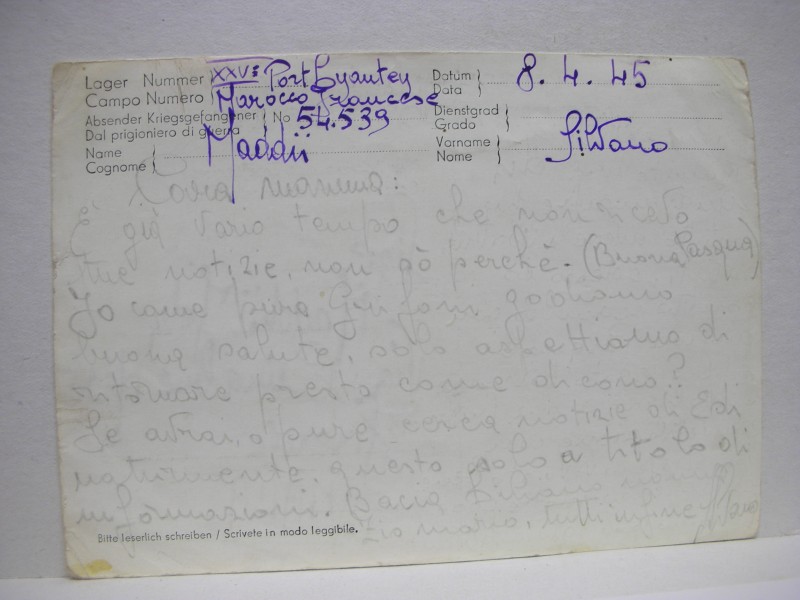 Lager Nummer } XXV: Port Lyautey Datum } 8. 4. 45
Campo Numero } Marocco Francese Data }
Absender Kriegsgefangener } No 54.539 Dienstgrad }
Dal prigioniero di guerra } Grado }
Name } Vorname } Silvano
Cognome } Nome }
Cara mamma:
È già vario tempo che non ricevo
tue notizie, non sò perchè. (Buona Pasqua)
Io come pure godiamo
buona salute, solo aspettiamo di
ritornare presto come dicono?
Se avrai, oppure cerca notizie di Edi
questo solo a titolo di
informazioni. Bacia Silvano nonna
zio mario, tutti infine Silvano
Bitte leserlich schreiben / Scrivete in modo leggibile.